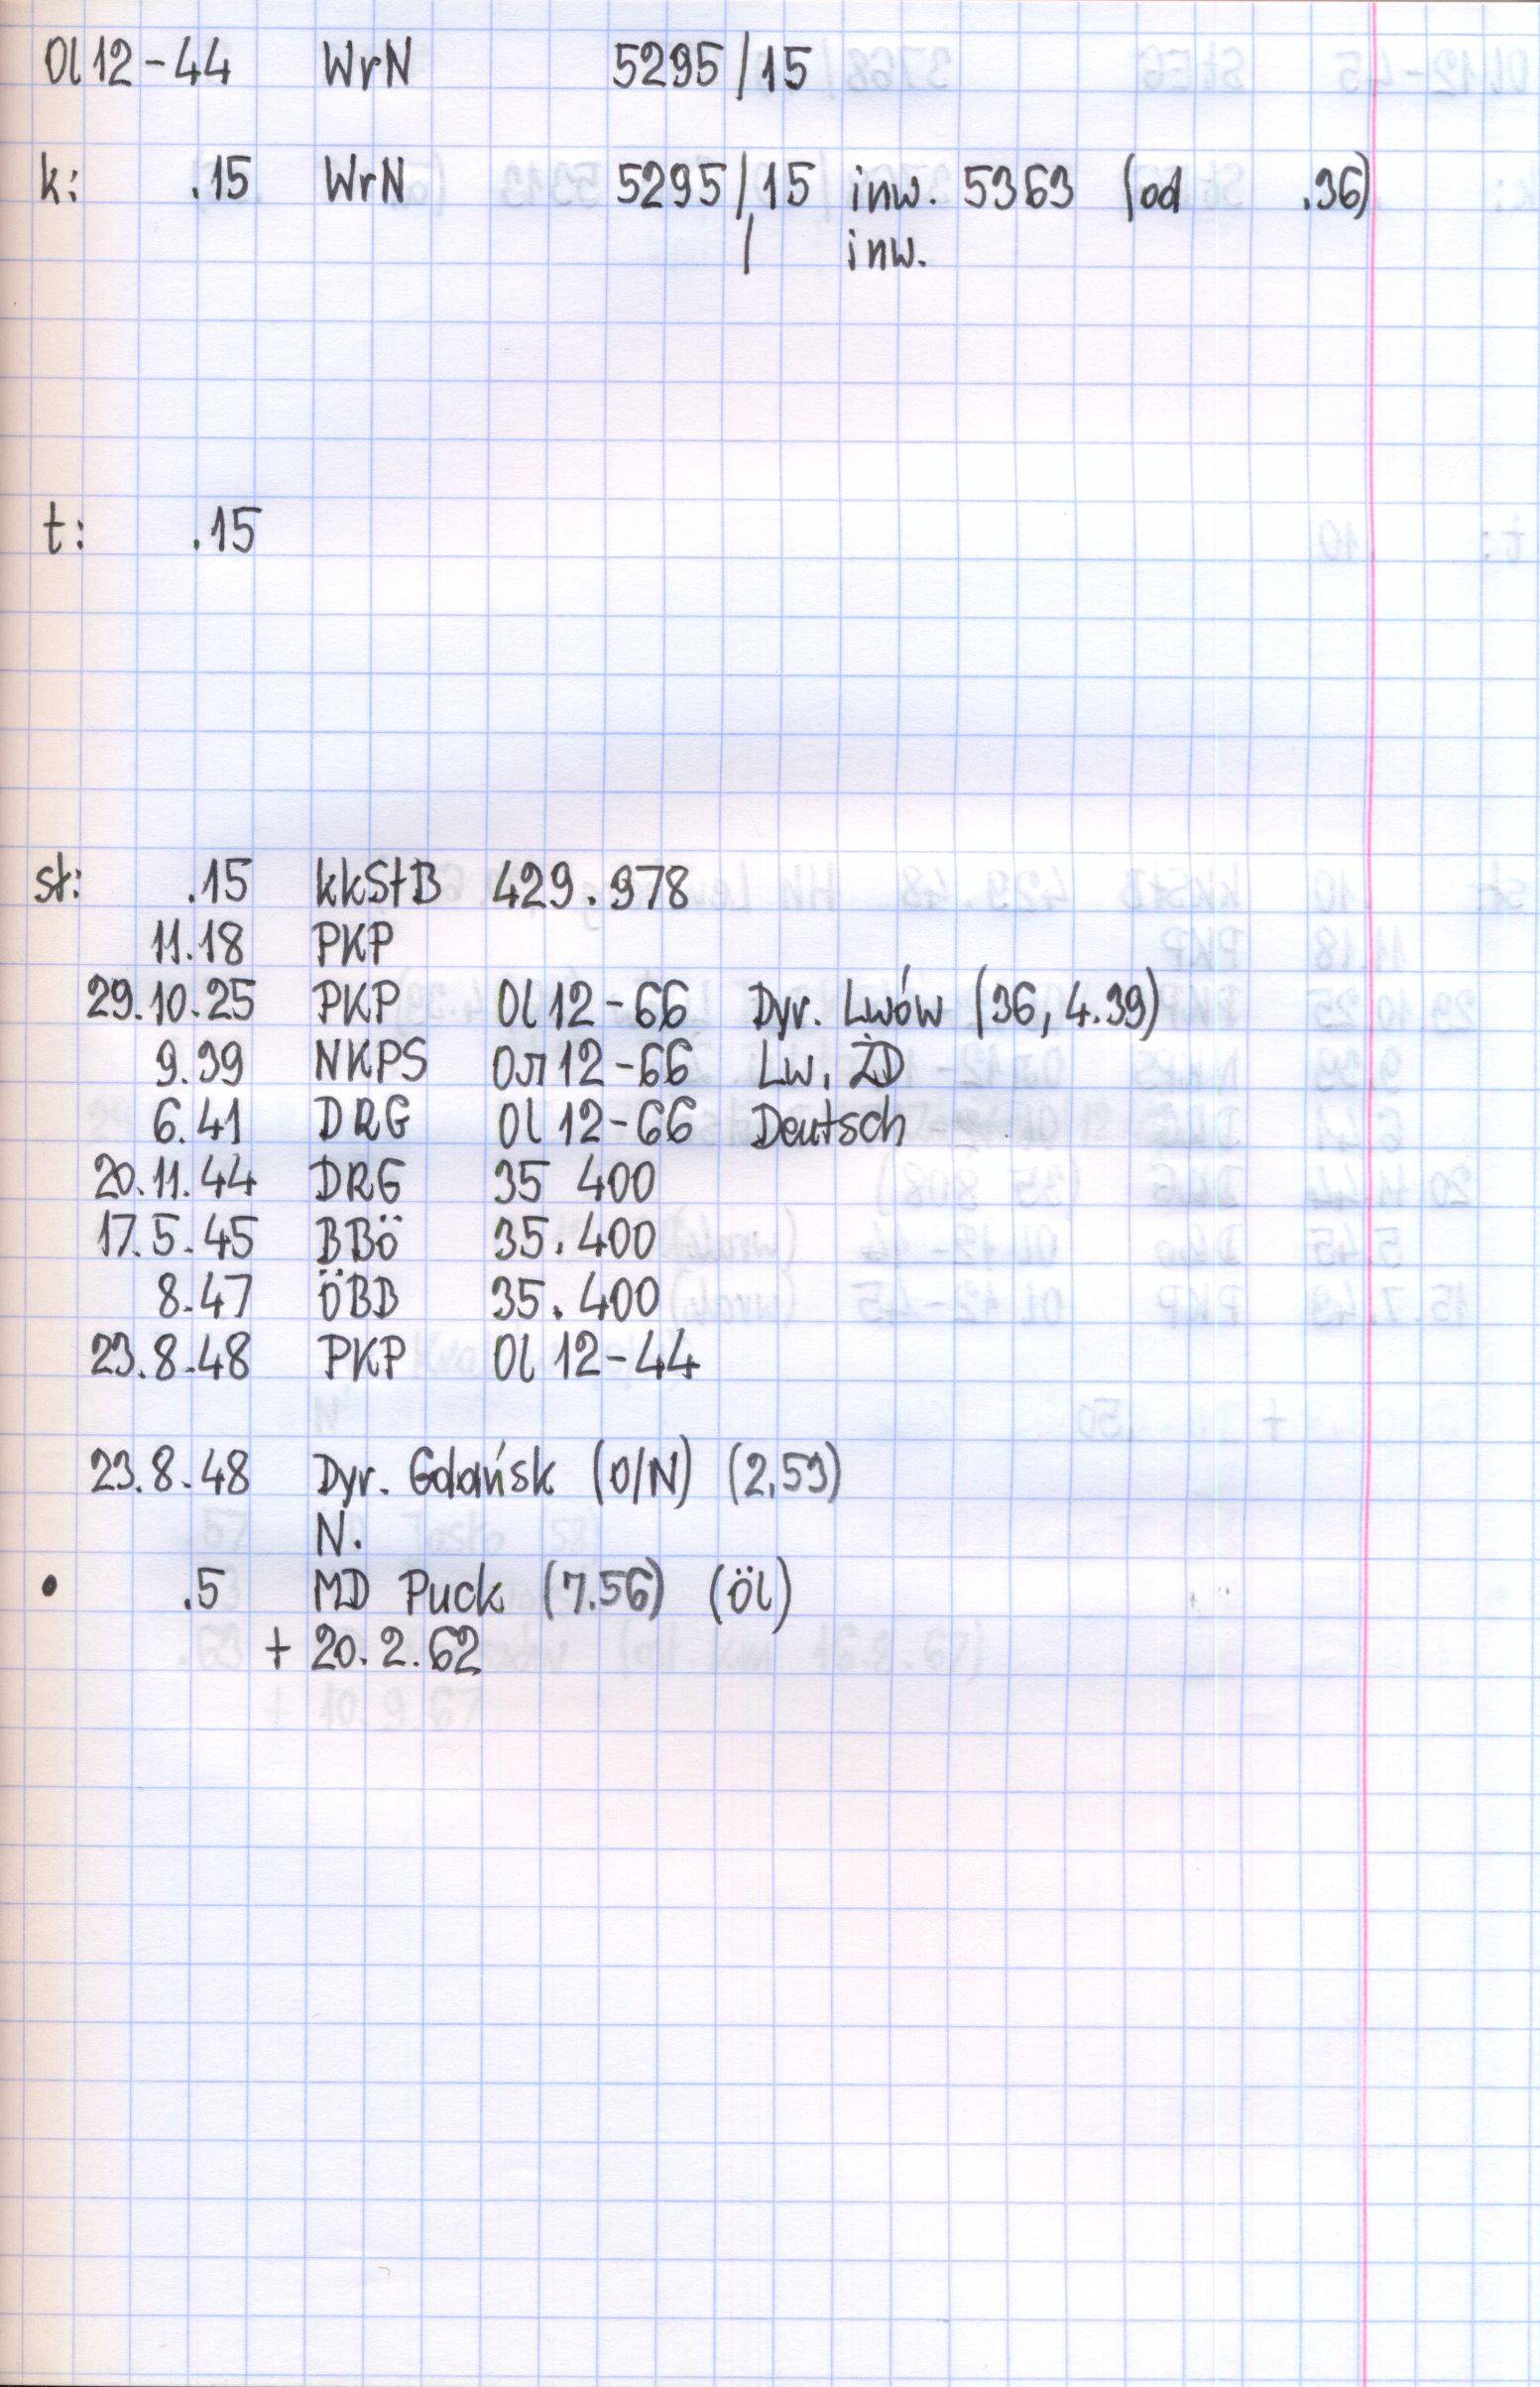 Ol12-44 WrN 5295/15
k: .15 WrN 5295/15 inw. 5363 (od .36)
/ inw.
t: .15
st: .15 kkStB 429.978
11.18 PKP
29.10.25 PKP Ol12-66 Dyr. Lwów (36, 4.39)
9.39 NKPS Ол12-66 Lw. ŻD
6.41 DRG Ol12-66 Deutsch
20.11.44 DRG 35 400
17.5.45 BBÖ 35.400
8.47 ÖBB 35.400
23.8.48 PKP Ol12-44
23.8.48 Dyr. Gdańsk (O/N) (2.53)
N.
• .5 MD Puck (7.56) (öl)
+ 20.2.62